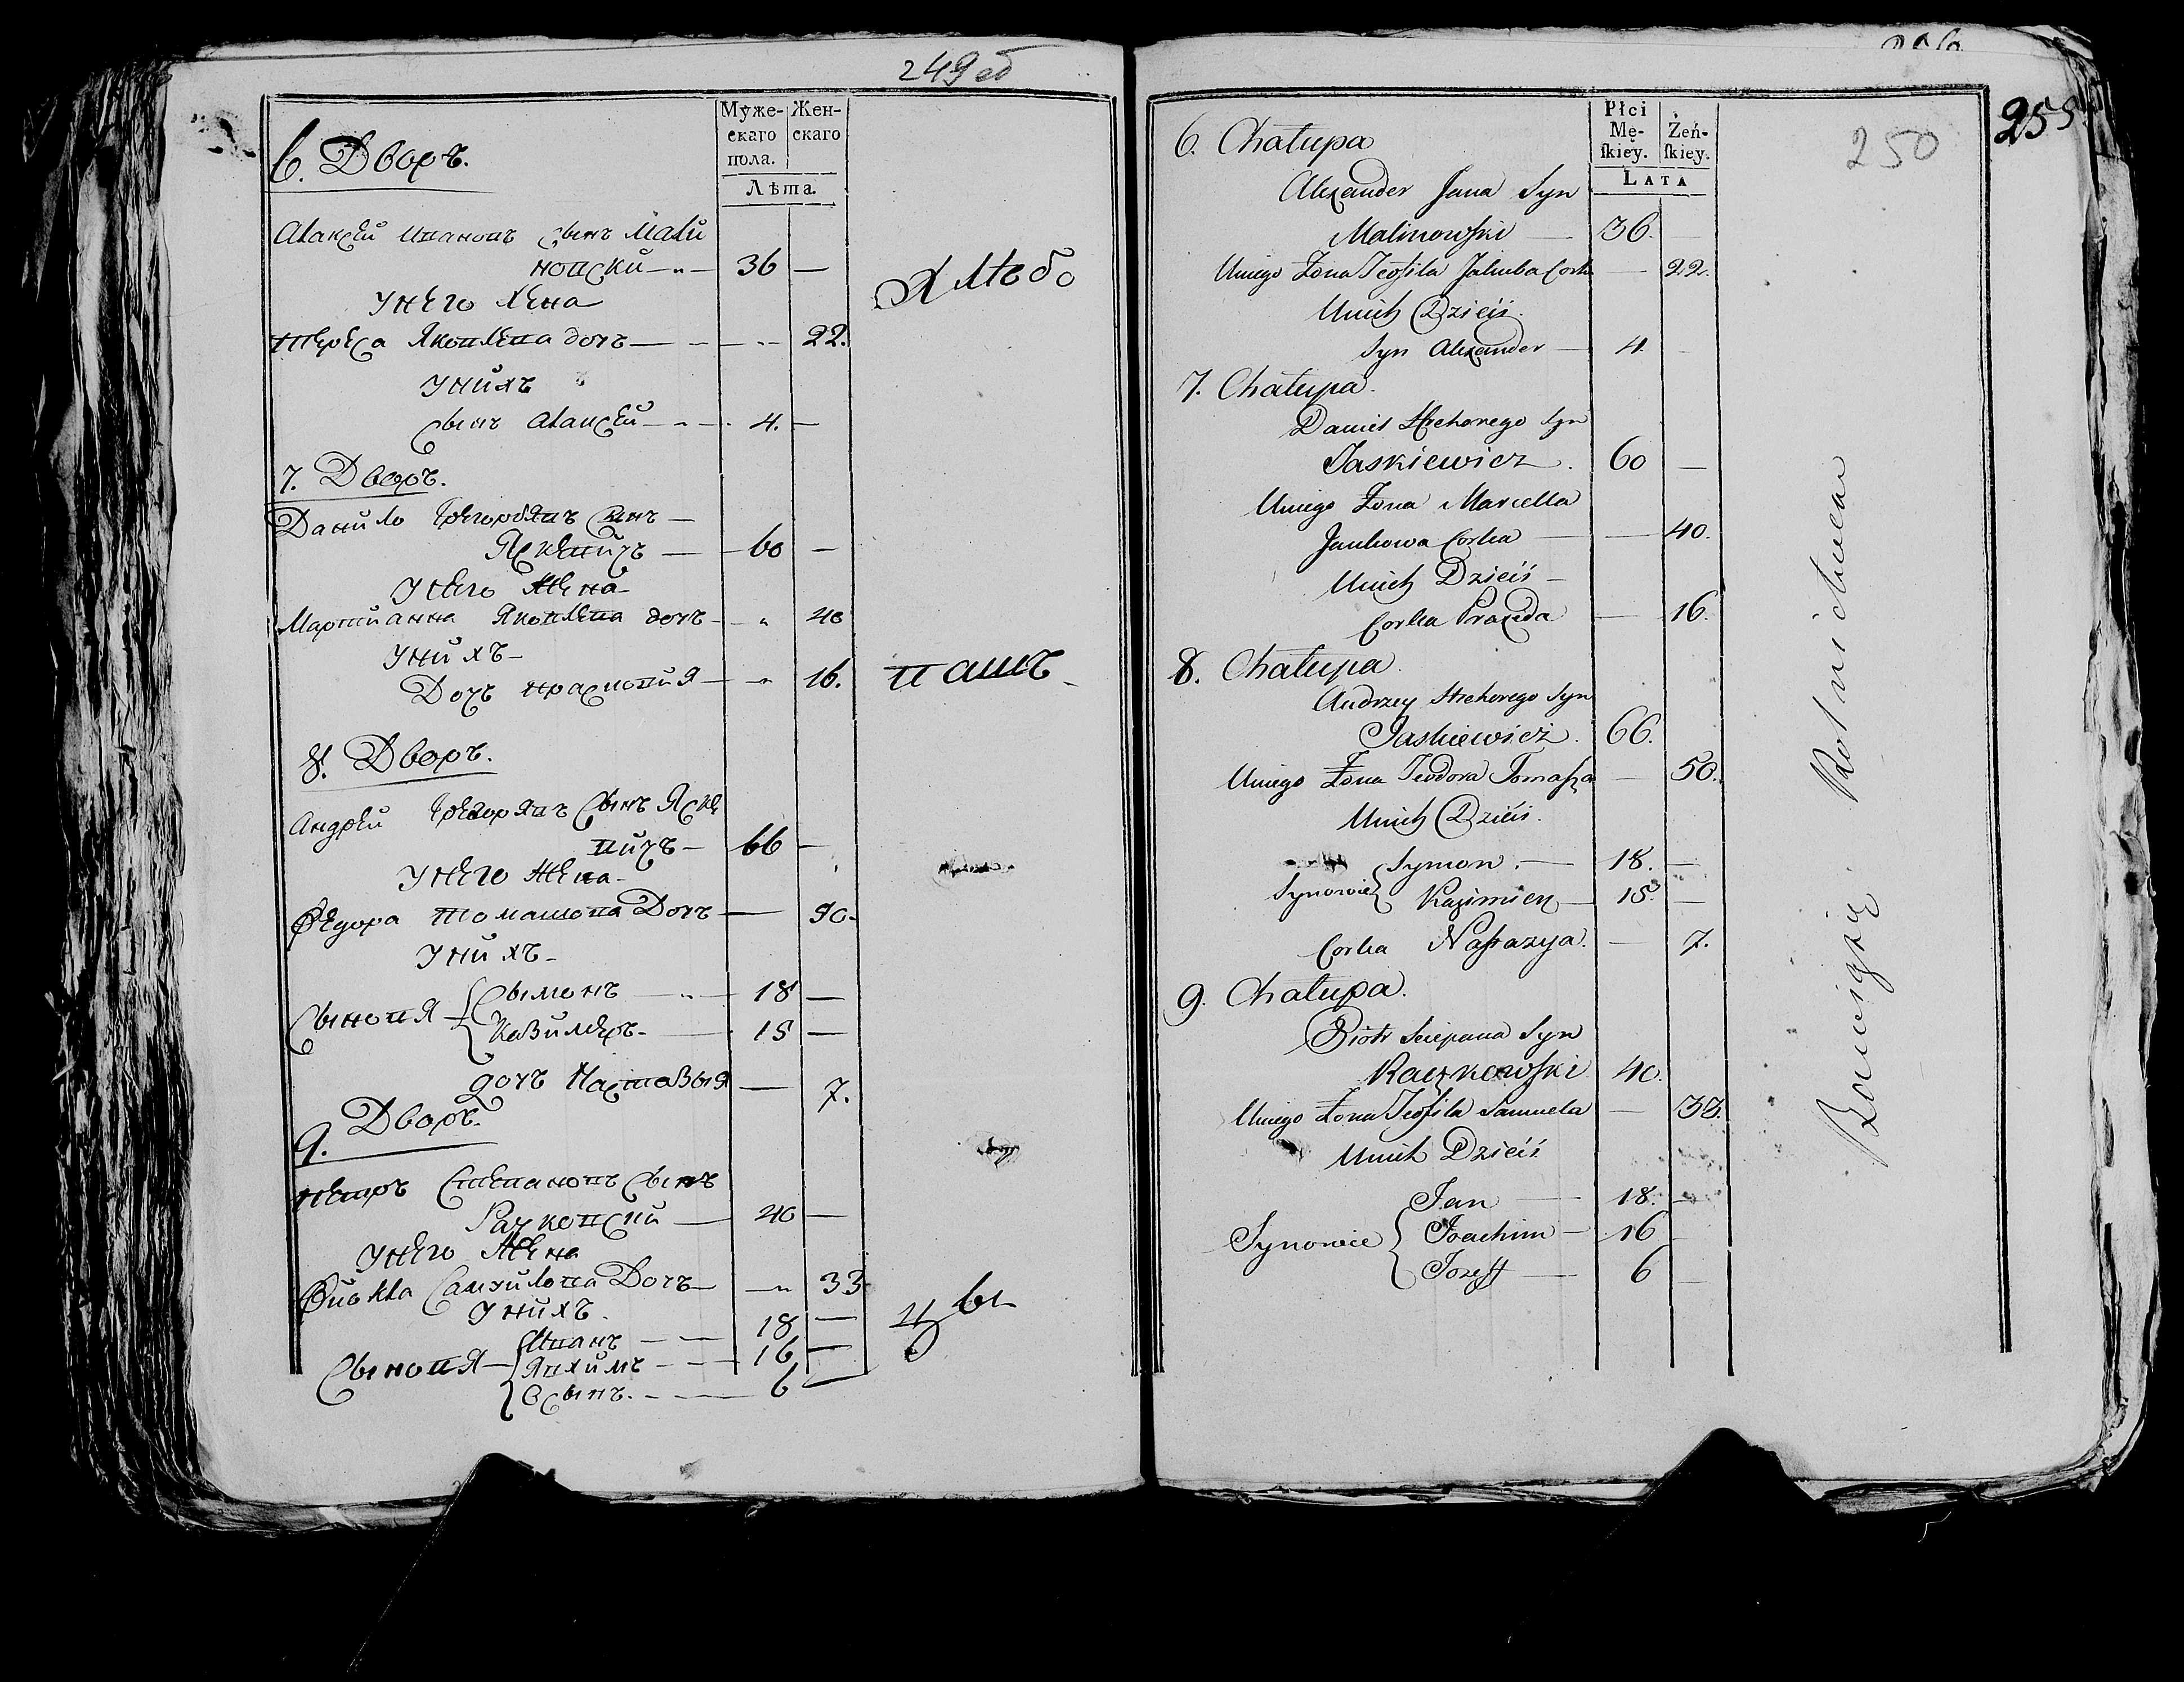 249 об
Муже-
скаго
пола.
Жен-
скаго
Лѣта.
6. Дворъ.
Алаксей Ивановъ сынъ Мали
новски 36 —
У него жена
Тереса Яковлева дочъ — 22.
У нихъ
Сынъ Алаксей — 4. —
7. Дворъ.
Данило Грегорьявъ сынъ —
Яскевичъ — 60 —
У него жена
Мартианна Яковлева дочъ — 40
У нихъ —
Дочъ — 16.
8. Дворъ.
Андрей сынъ Яске
вичъ — 66 —
У него жена —
Федора Томашова Дочъ — 50 —
У нихъ —
Сыновя { Сымонъ — 18 —
Казимеръ — 15 —
дочъ Настазыя — 7.
9. Дворъ.
Петръ Степановъ Сынъ
Рачковский — 40 —
У него жена
Самуилова Дочъ — 33
У нихъ
Сыновя — { Иванъ — 18 —
Яхимъ — 16 —
Осыпъ — 6 —
255
250
Płci
Mę-
ſkiey.
Żeń-
ſkiey.
LATA
6. Chałupa
Alexander Jana Syn
Malinowſki — 36. —
Uniego Żona Teofila Jakuba Corka — 22.
Unich Dzieci.
Syn Alexander — 4. —
7. Chałupa.
Daniel Hrehorego Syn
Jaskiewicz. 60 —
Uniego Żona Marcella
Jankowa Corka — 40.
Unich Dzieci —
Corka Praxeda — 16.
8. Chałupa.
Andrzey Hrehorego Syn
Jaskiewicz. 66.
Uniego Żona Teodora Tomaſza — 50.
Unich Dzieci.
Synowie { Symon. — 18. —
Kazimierz — 15. —
Corka Naſtazya. — 7.
9. Chałupa.
Piotr Sciepana Syn
Raczkowſki 40.
Uniego Żona Teofila Samuela — 33.
Unich Dzieci
Synowie { Jan — 18. —
Joachim — 16 —
Jozeff — 6 —